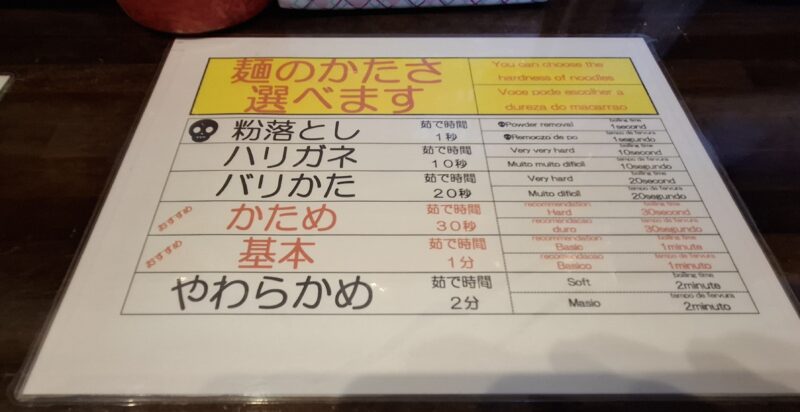 麺のかたさ
選べます
You can choose the
hardness of noodles
Voce pode escolher a
dureza do macarrao
粉落とし 茹で時間 1秒
Powder removal boiling time 1second
Remoczo de po tempo de fervura 1segundo
ハリガネ 茹で時間 10秒
Very very hard boiling time 10second
Muito muito dificil tempo de fervura 10segundo
バリかた 茹で時間 20秒
Very hard boiling time 20second
Muito dificil tempo de fervura 20segundo
おすすめ かため 茹で時間 30秒
recommendation Hard boiling time 30second
recomendacao duro tempo de fervura 30segundo
おすすめ 基本 茹で時間 1分
recommendation Basic boiling time 1minute
recomendacao Basico tempo de fervura 1minuto
やわらかめ 茹で時間 2分
Soft boiling time 2minute
Masio tempo de fervura 2minuto